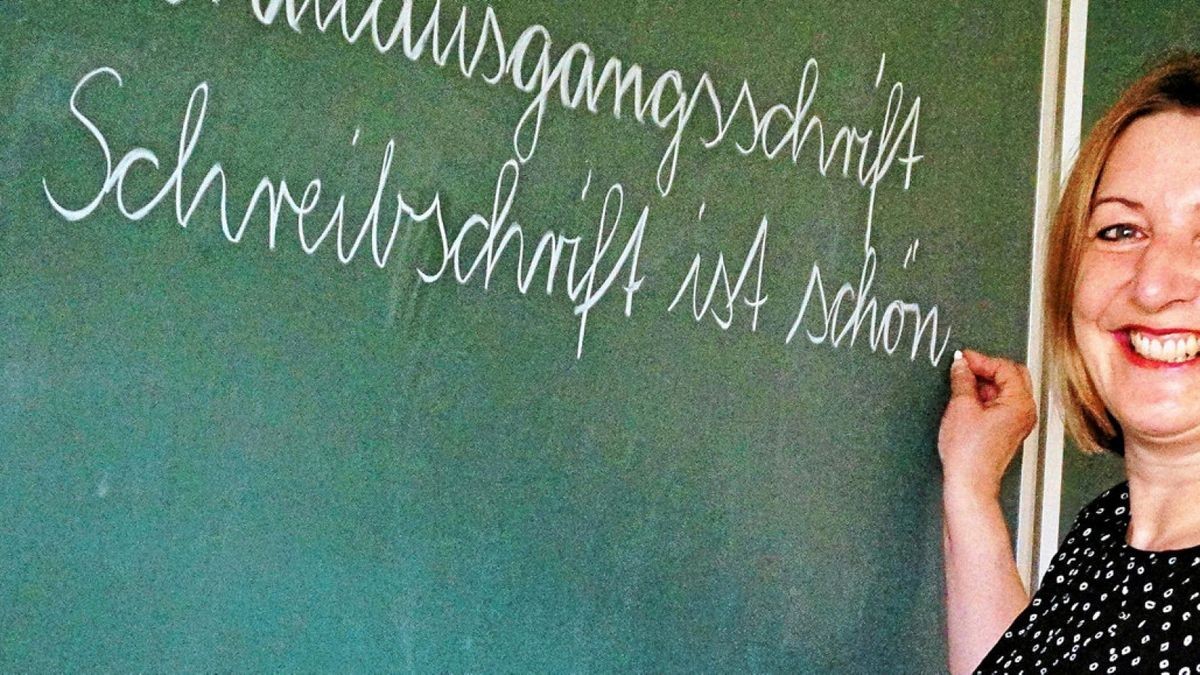 ausgangsschrift
Schreibschrift ist schön